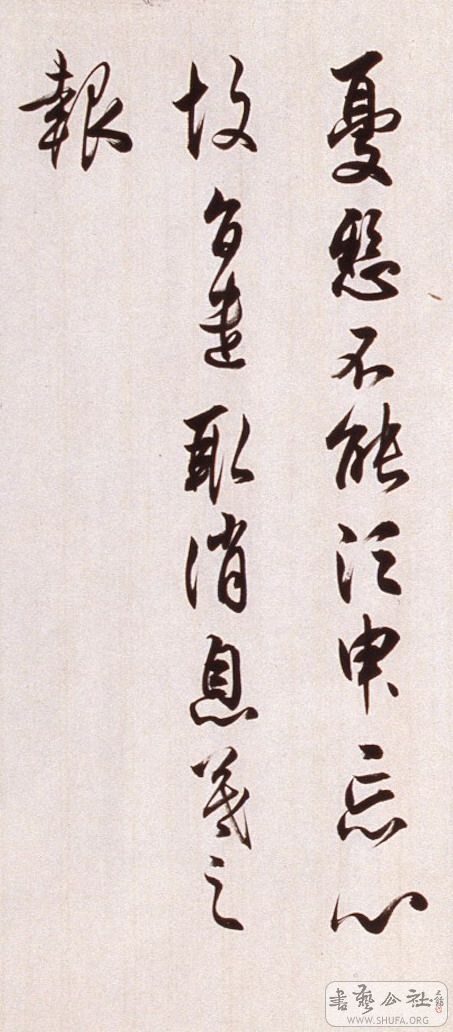 憂懸不能須臾忘心
故旨遣取消息羲之
報
書藝公社
WWW.SHUFA.ORG